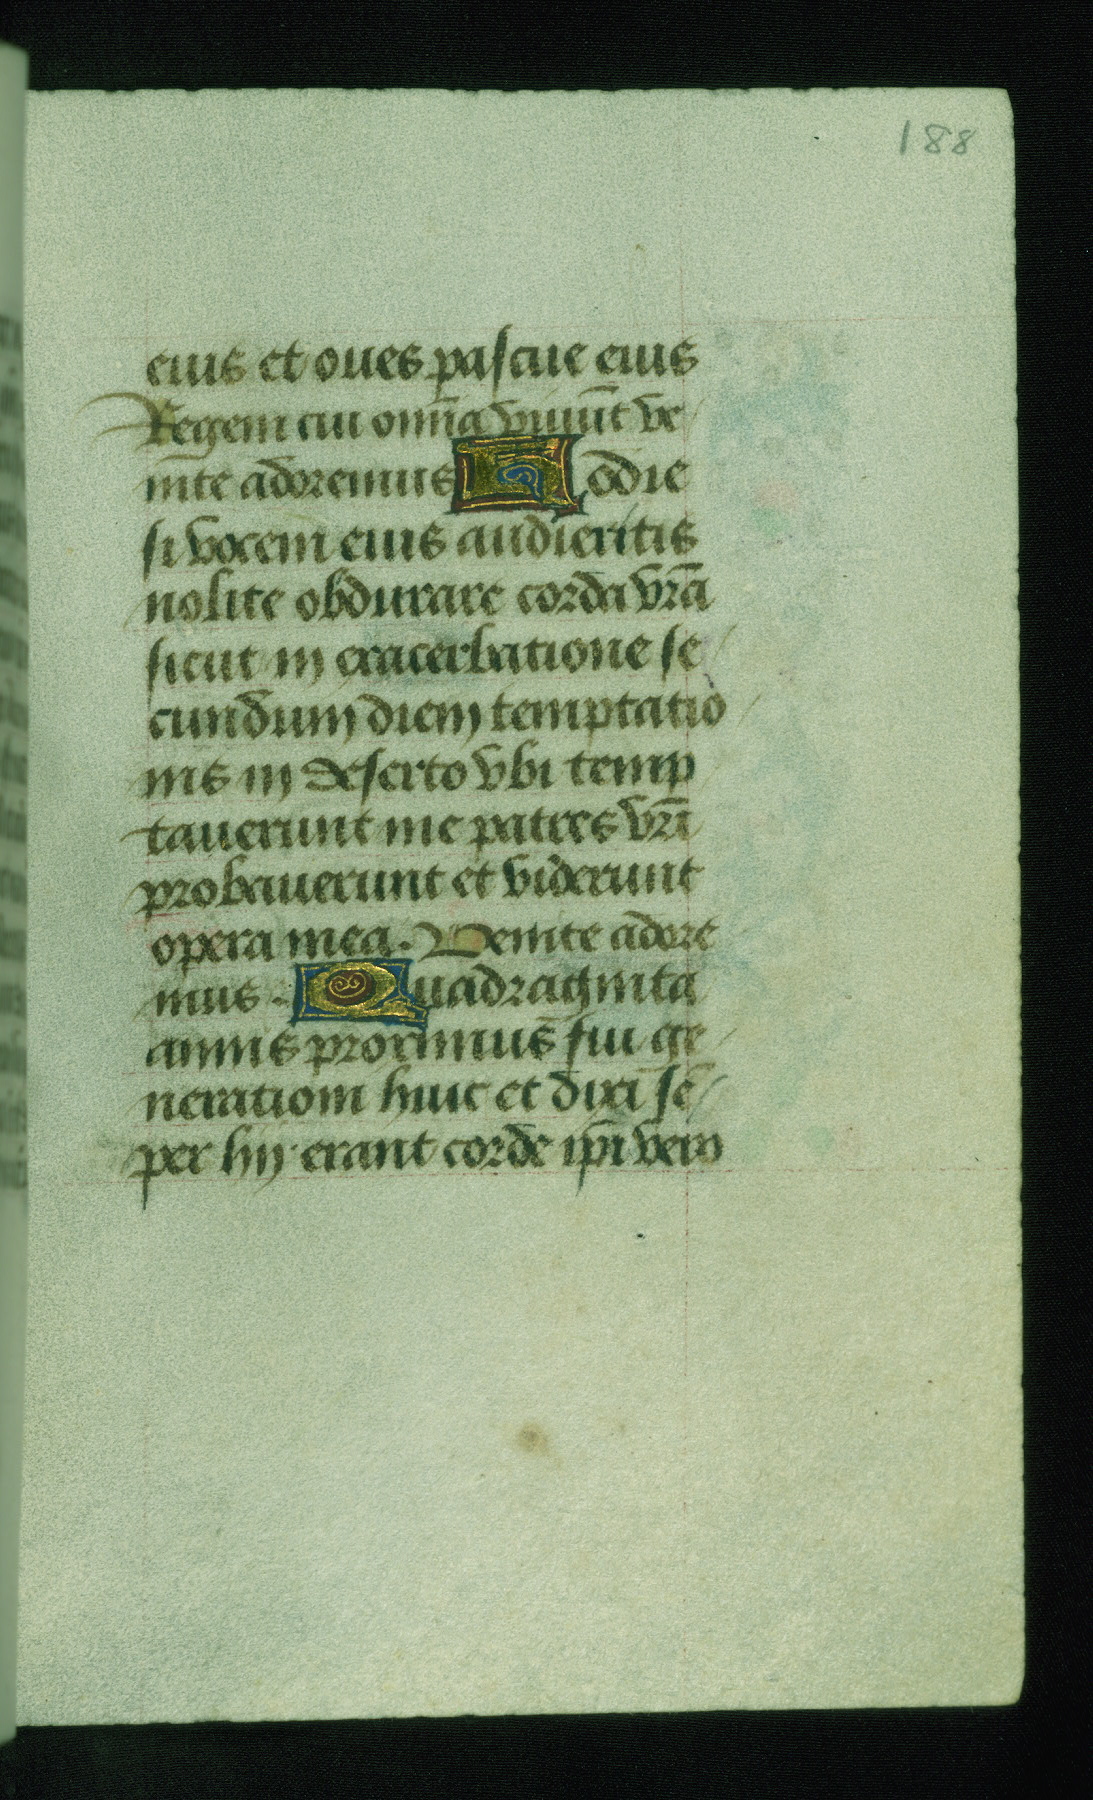 188
eius et oues pascue eius
Regem cui om̄ia viuūt ve
nite adoremus Hodie
si vocem eius audieritis
nolite obdurare corda vr̄a
sicut in exacerbatione se
cundum diem temptatio
nis in deserto vbi temp
tauerunt me patres vr̄i
probauerunt et viderunt
opera mea. Venite adore
mus. Quadraginta
annis proximus fui ge
nerationi huic et dixi sē
per hij erant corde ip̄i vero